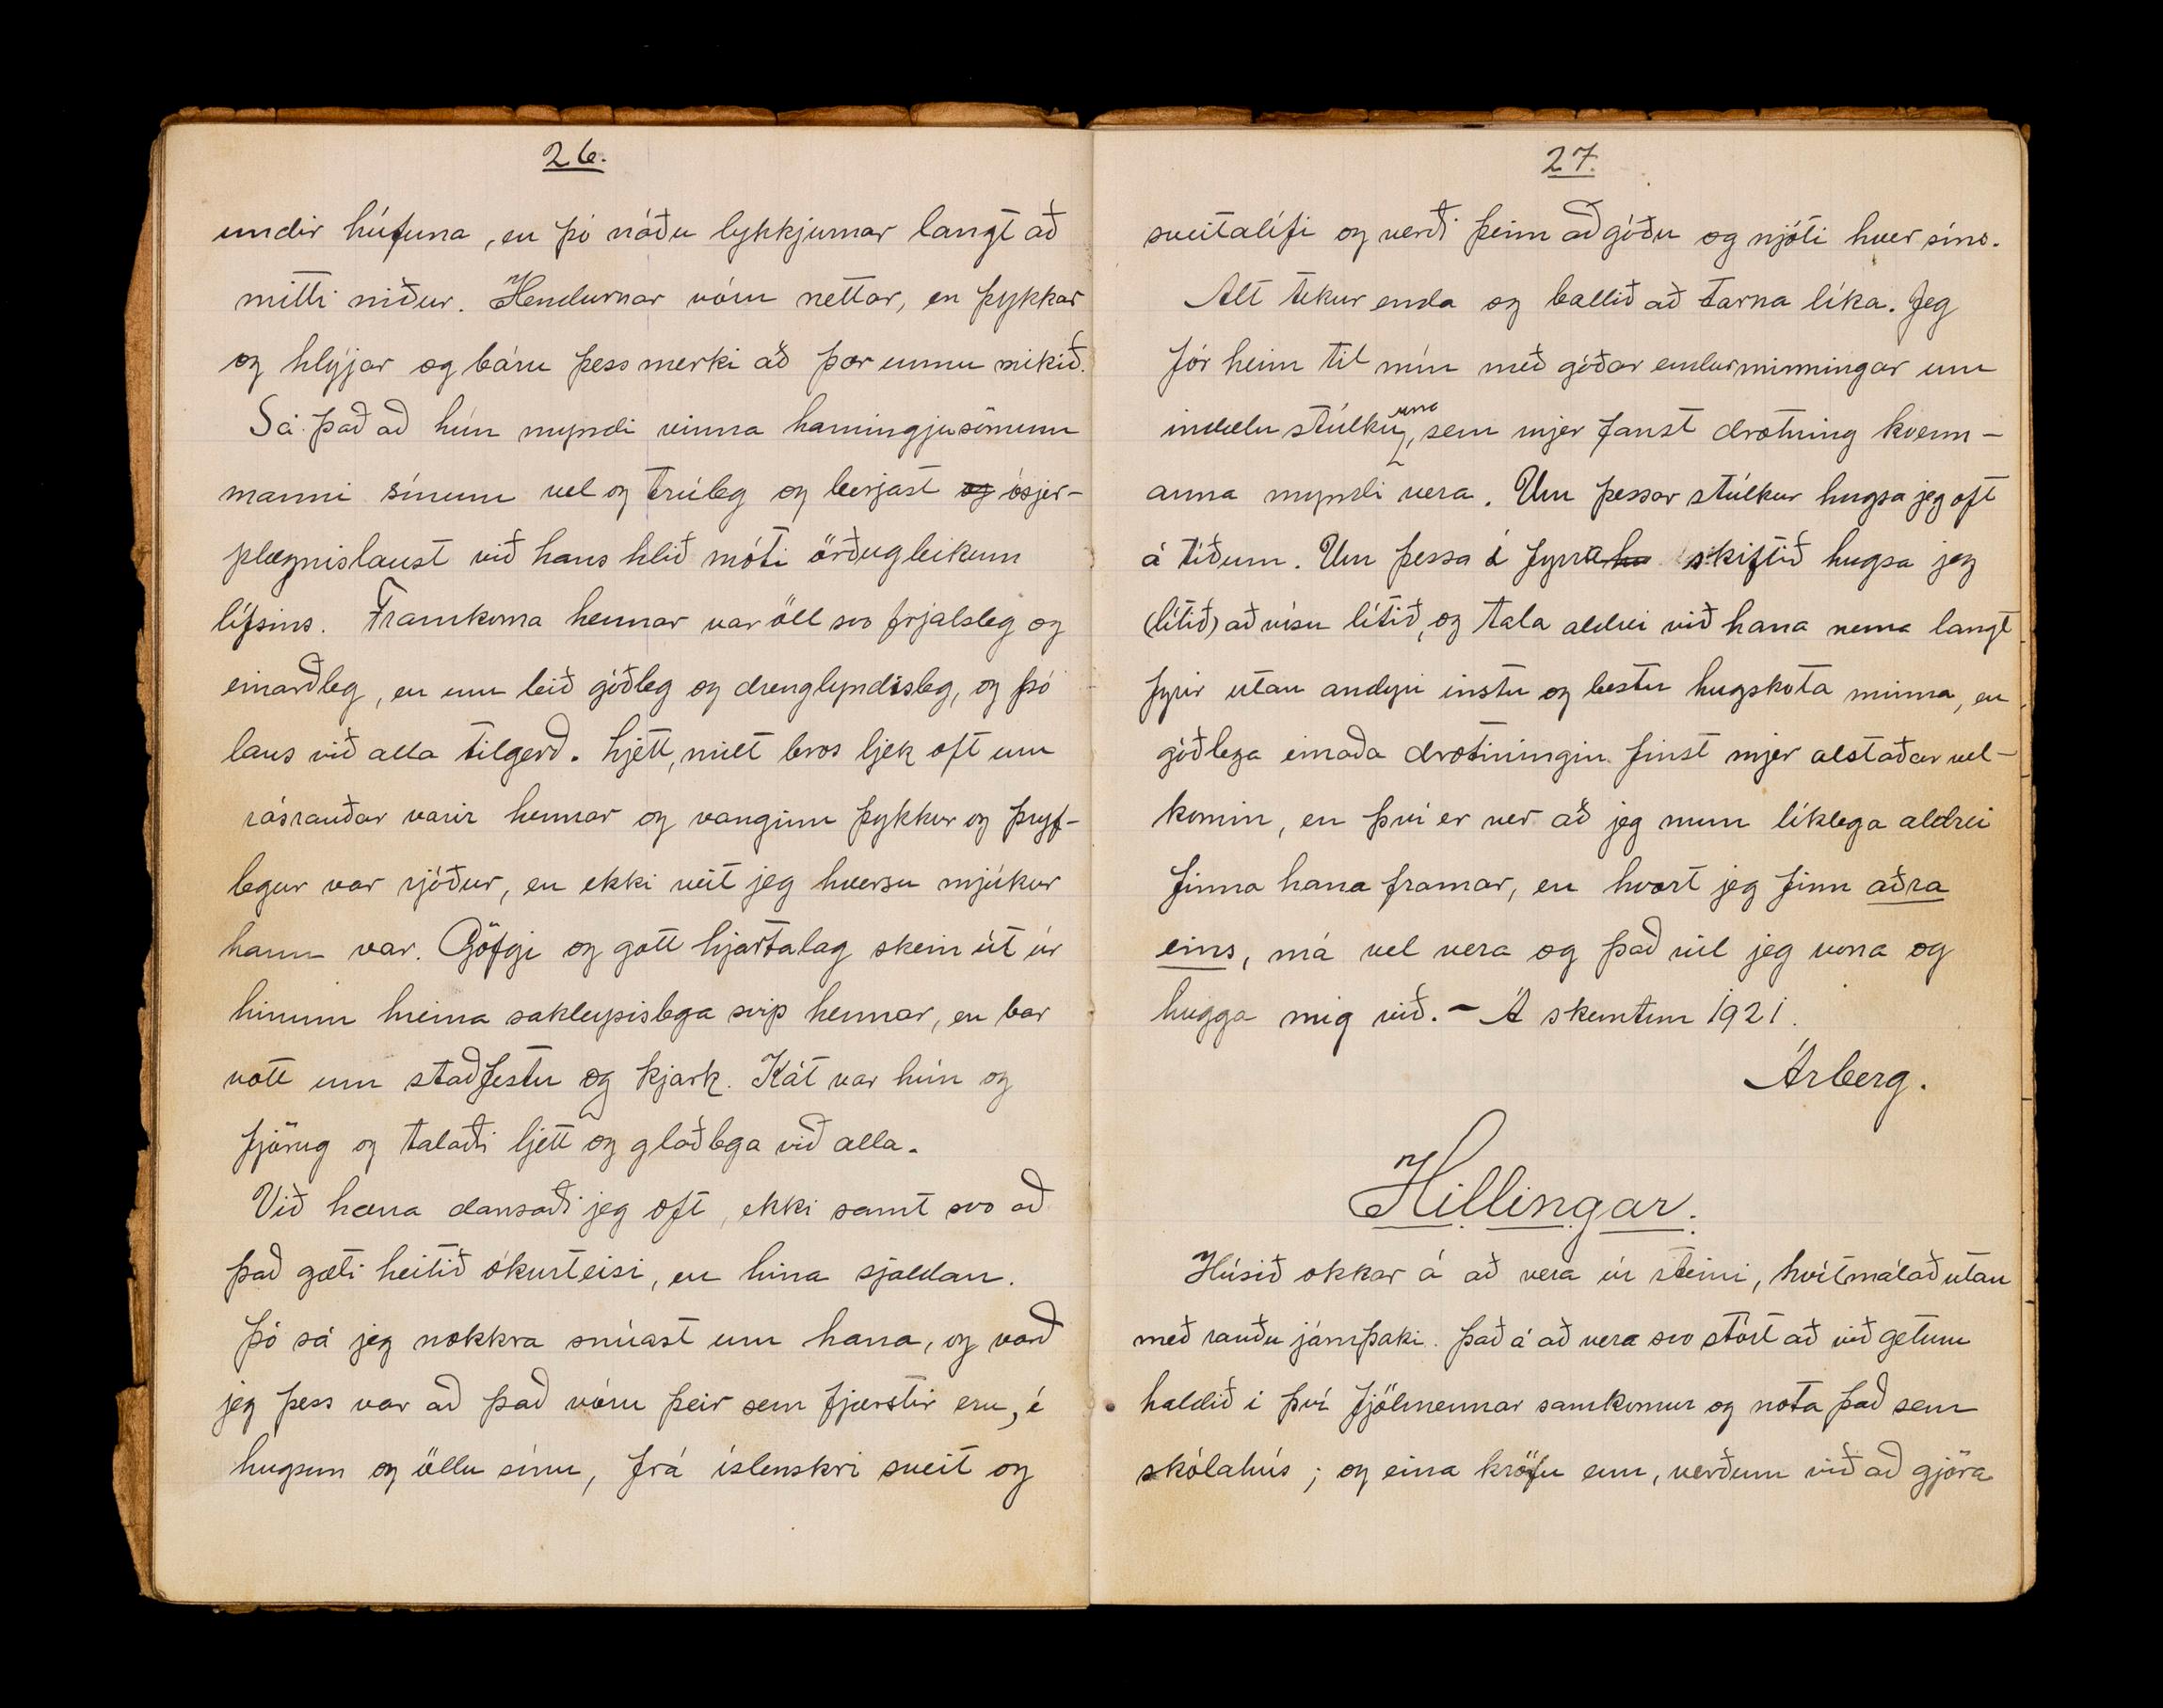 26.
undir húfuna, en þó náðu lykkjurnar langt að
mitti niður. Hendurnar vóru nettar, en þykkar
og hlýjar og báru þess merki að þær unnu mikið.
Sá það að hún myndi vinna hamingjusömum
manni sínum vel og trúleg og berjast og ósjer-
plægnislaust við hans hlið móti örðugleikum
lífsins. Framkoma hennar var öll svo frjalsleg og
einarðleg, en um leið góðleg og drenglyndisleg, og þó
laus við alla tilgerð. hjett, milt bros ljek oft um
rósrauðar varir hennar og vanginn þykkur og þryf-
legur var rjóður, en ekki veit jeg hversu mjúkur
hann var. Göfgi og gott hjartalag skein út úr
hinum hreina sakleysislega svip hennar, en bar
vott um staðfestu og kjark. Kát var hún og
fjörug og talaði ljett og glaðlega við alla.
Við hana dansaði jeg oft, ekki samt svo að
það gæti heitið ókurteisi, en hina sjaldan.
Þó sá jeg nokkra snúast um hana, og varð
jeg þess var að það vóru þeir sem fjærstir eru, í
hugsun og öllu sínu, frá íslenskri sveit og
27.
sveitalífi og verði þeim að góðu og njóti hver síns.
Alt tekur enda og ballið að tarna líka. Jeg
fór heim til mín með góðar endurminningar um
indælu stúlkuna, sem mjer fanst drotning kvenn-
anna myndi vera. Um þessar stúlkur hugsa jeg oft
á tíðum. Um þessa í fyrra skiftið hugsa jeg
(lítið) að vísu lítið, og tala aldrei við hana nema langt
fyrir utan andyri instu og bestu hugskota minna, en
góðlega einaða drotiningin finst mjer alstaðar vel-
komin, en því er ver að jeg mun líklega aldrei
finna hana framar, en hvort jeg finn aðra
eins, má vel vera og það vil jeg vona og
hugga mig við. - Á skemtun 1921.
Árberg.
Hillingar.
Húsið okkar á að vera úr steini, hvítmálað utan
með rauðu járnþaki. Það á að vera svo stórt að við getum
haldið í því fjölmennar samkomur og nota það sem
skólahús; og eina kröfu enn, verðum við að gjöra